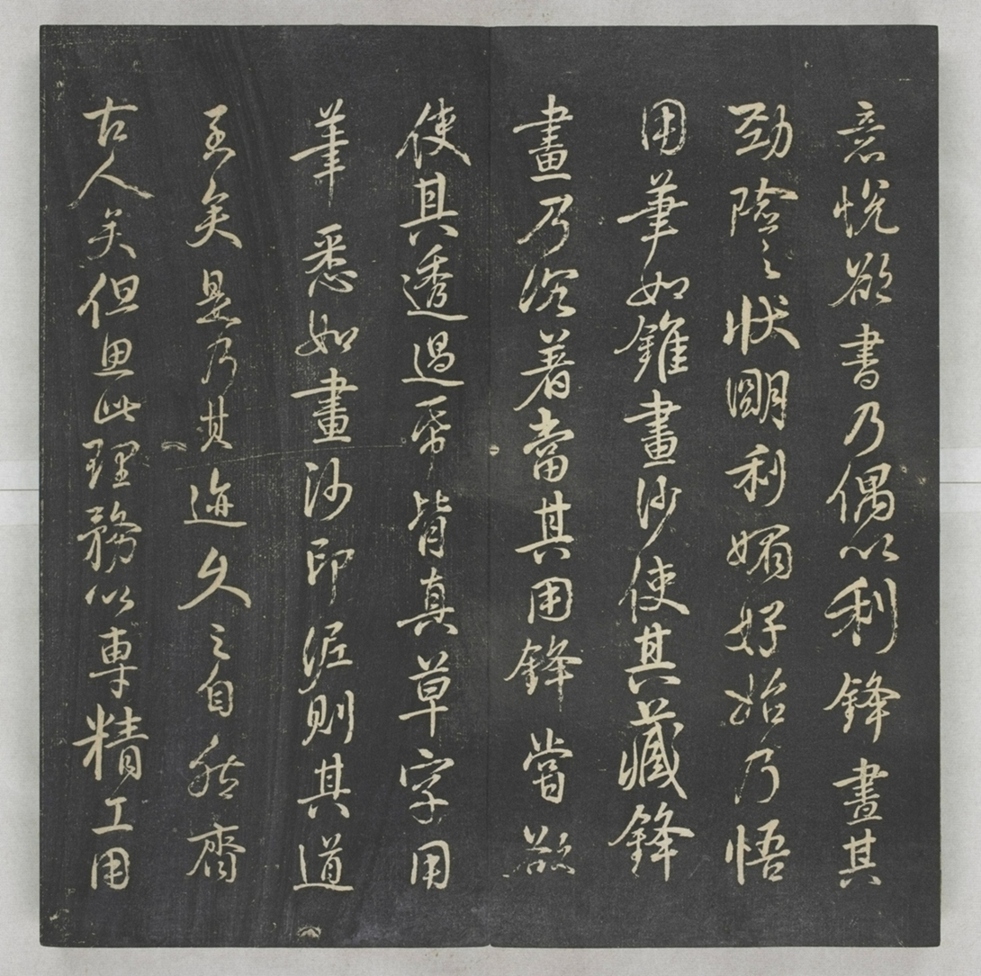 意悅欲書乃偶以利鋒畫其
勁險之狀明利媚好始乃悟
用筆如錐畫沙使其藏鋒
畫乃沉著當其用鋒嘗欲
使其透過紙背真草字用
筆悉如畫沙印泥則其道
至矣是乃其迹久之自然齊
古人矣但思此理務以專精工用